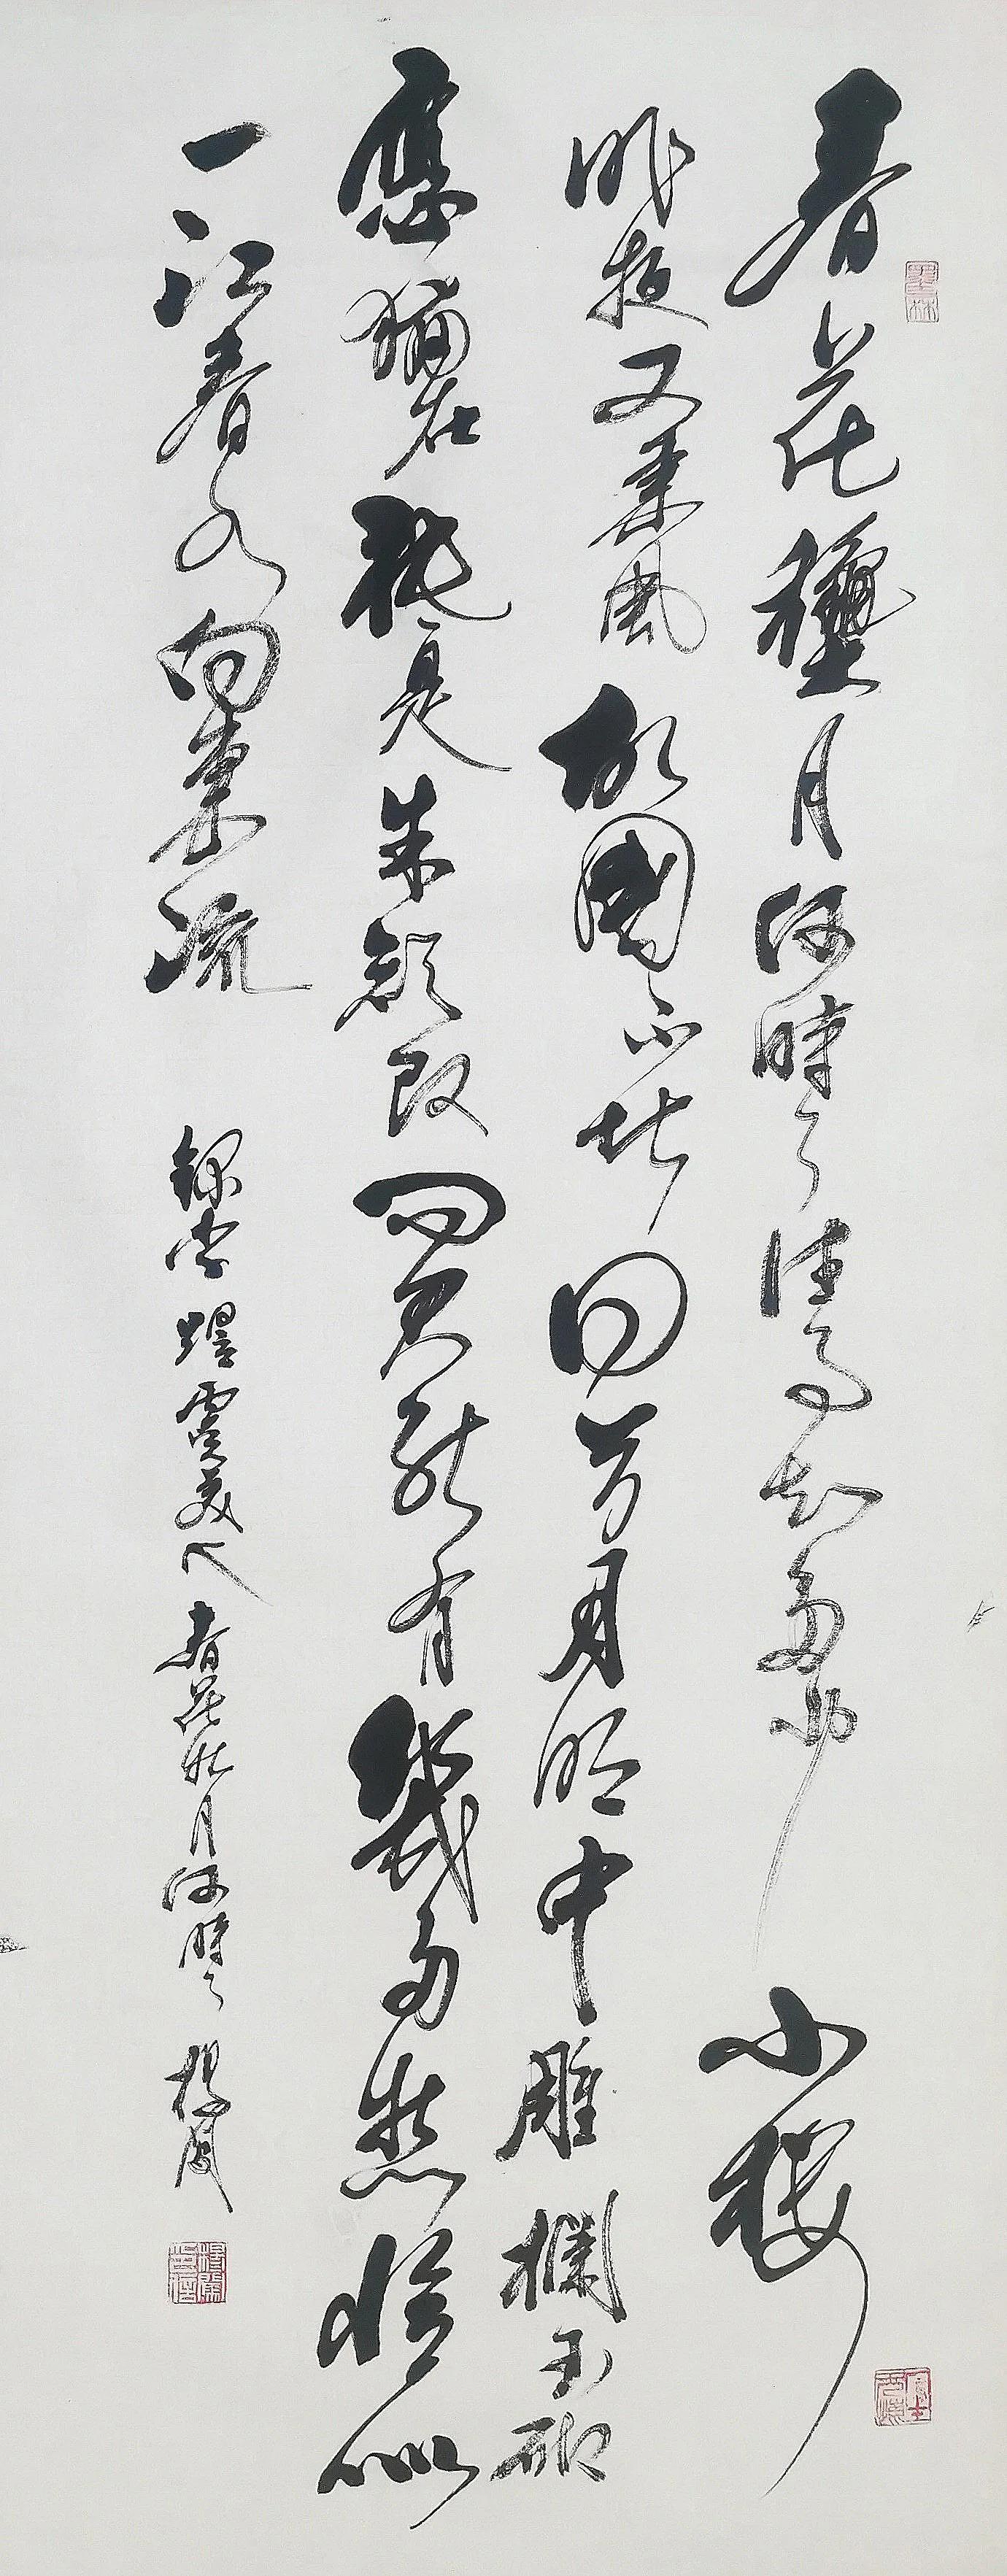 春花龝月何時了往事知多少小樓
昨夜又東風故國不堪回首月明中雕欄玉砌
應猶在祇是朱顏改問君能有幾多愁恰似
一江春水向東流
錄李煜虞美人春花秋月何時了 楊